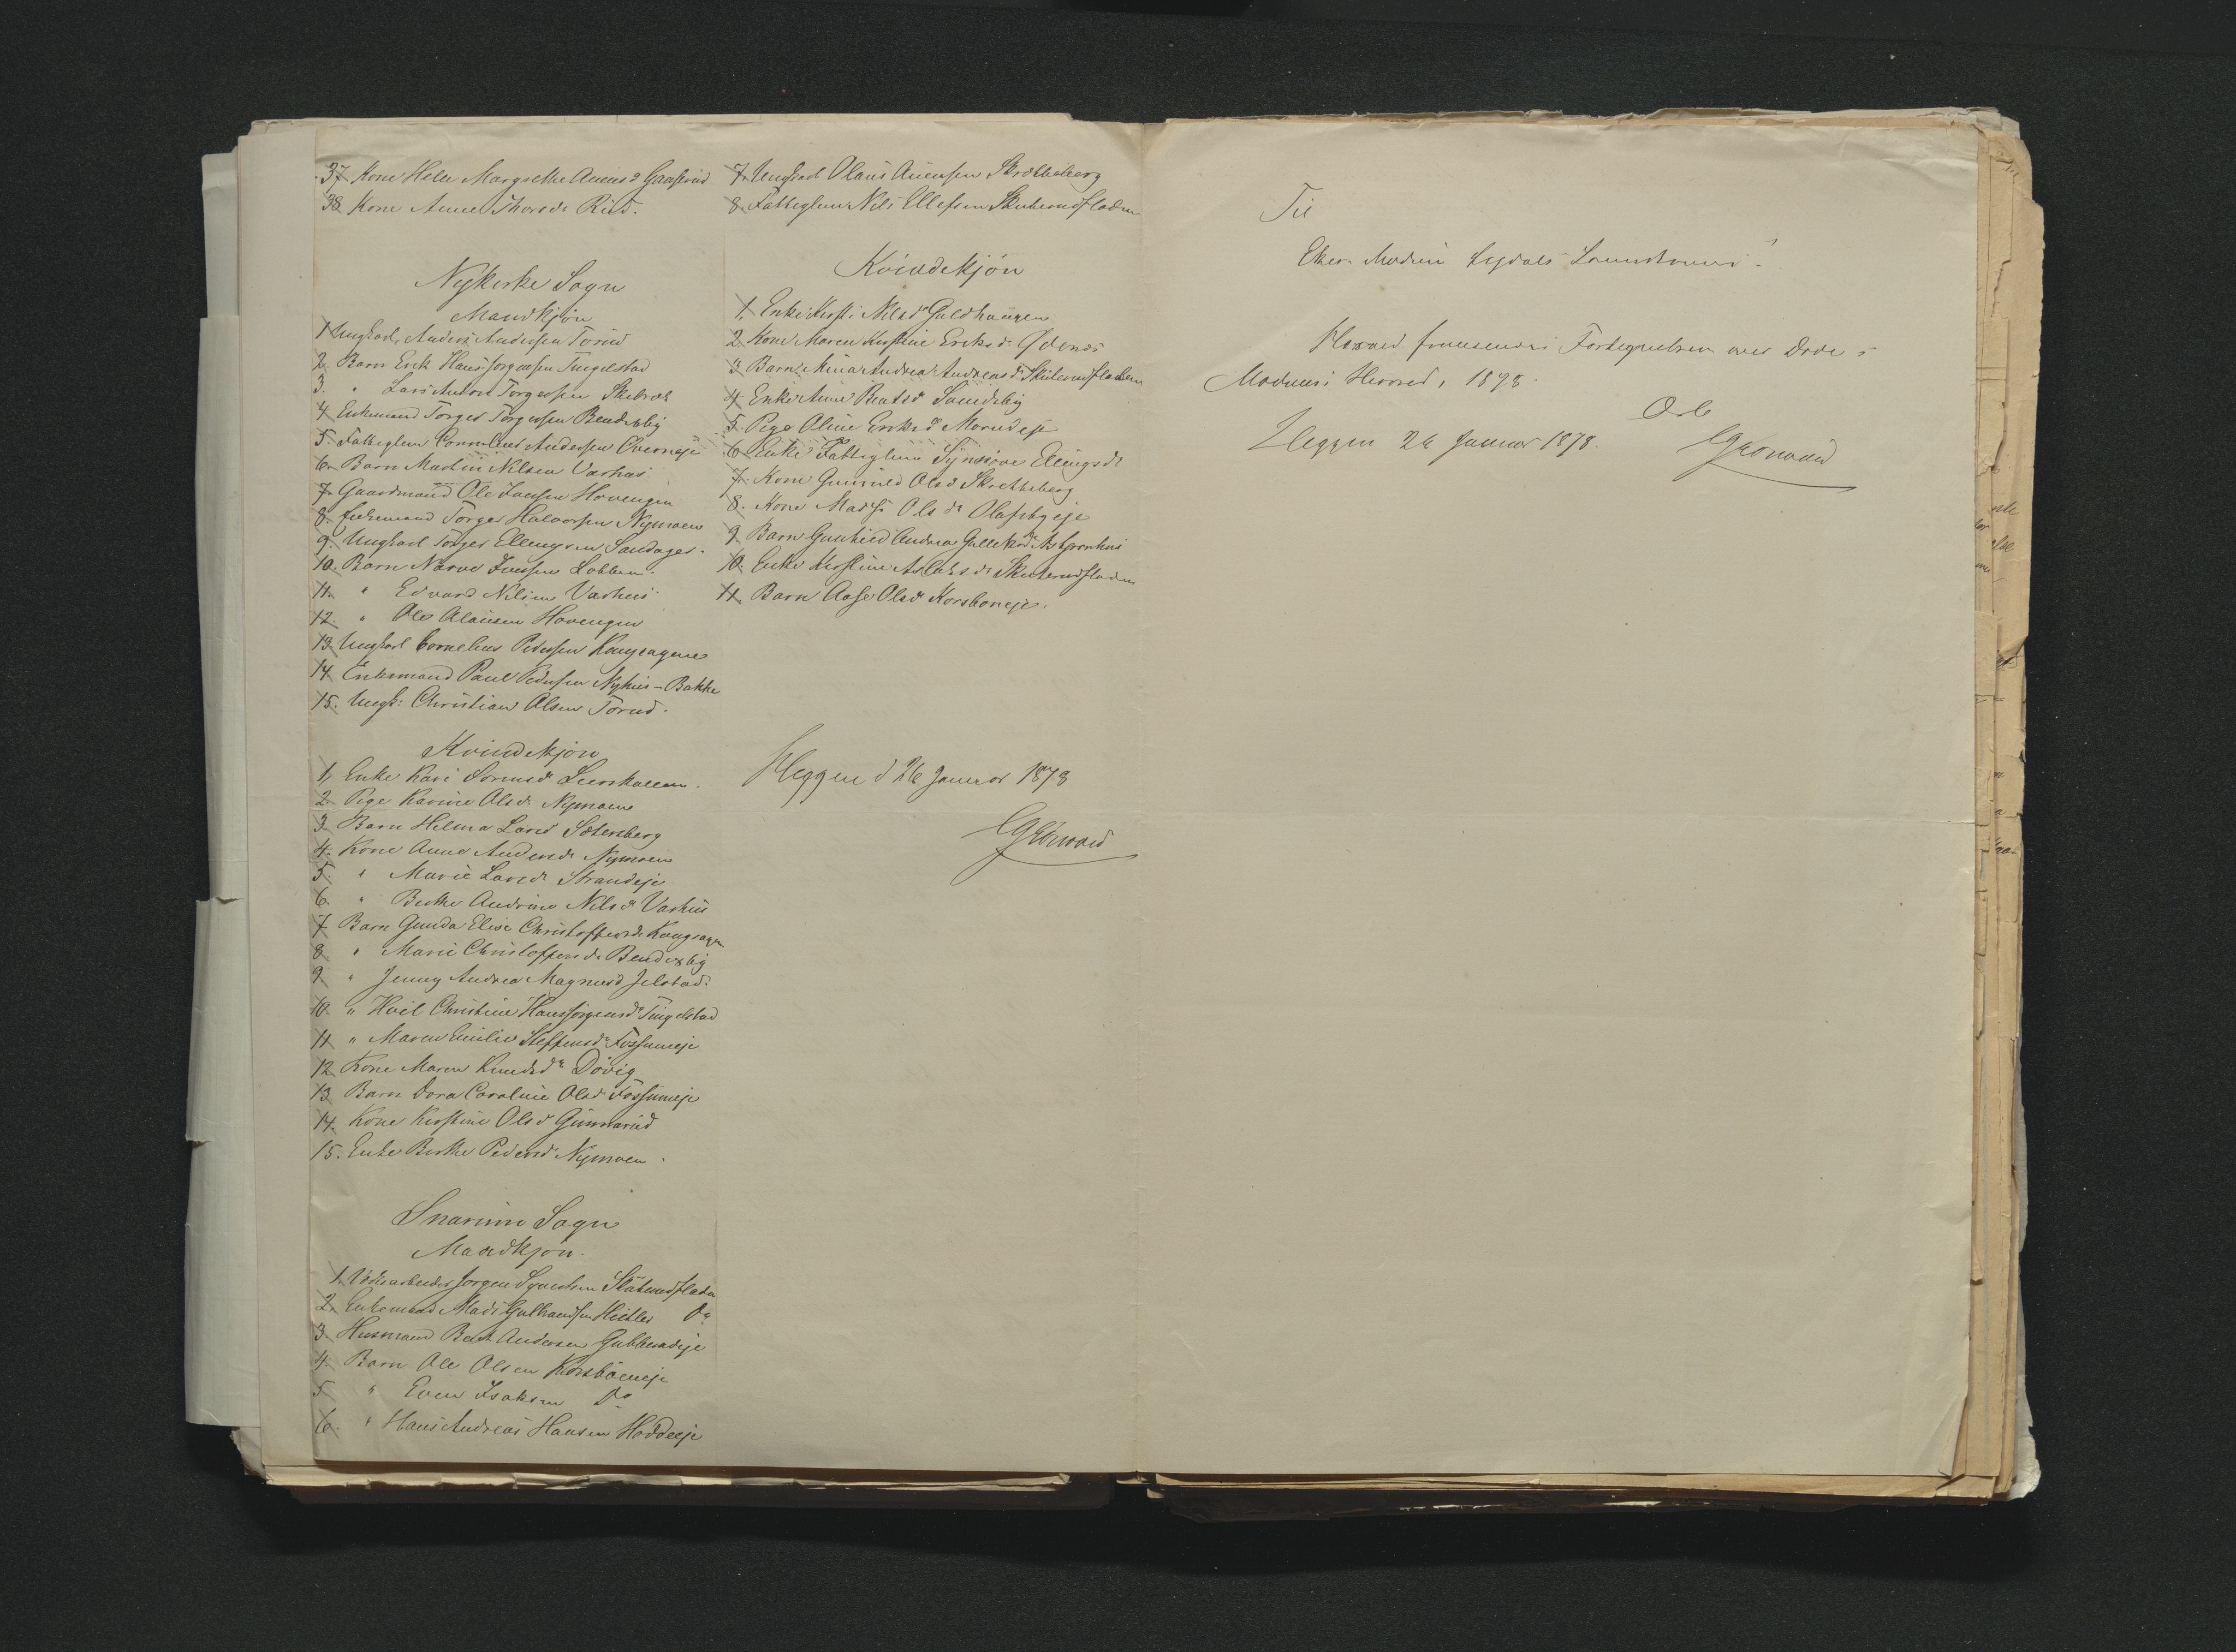 37 Kone Helle Margrethe Auensd Gaaserud
38. Kone Anne Thorsdr Rud.
Nykirke Sogn
Mandkjøn
1 Ungkarl Anders Andersen Torud
2. Barn Erik Hans Jørgensen Tingelstad
3 " Lars Anton Torgersen Skebræk
4 Enkemand Torger Torgersen Bendixby
5. Fattiglem Cornelius Andersen Overneje
6. Barn Martin Nilsen Varhus
7. Gaardmand Ole Hovengen
8. Enkemand Torger Halvorsen Nymoen
9. Ungkarl Torger Ellingsen Sandager.
10. Barn Narve Jensen Lobben.
11. " Edvard Nilsen Varhus
12. " Ole Olausen Hovengen
13. Ungkarl Cornelius Pedersen Kongsagene
14. Enkemand Paul Pedersen Nyhus-Bakke
15. Ungk: Christian Olsen Torud.
Kvindekjøn
1, Enke Kari Sorensdr
2. Pige Karine Olsdr Nymoen
3. Barn Helma Larsd Sætersberg
4. Kone Anne Andersdr Nymoen
5. " Marie Larsdr Strandeje
6. " Berthe Andrine Nilsdr Varhus
7 Barn Gunda Elise Christoffersdr Kongsagen
8. " Marie Christoffersdr Bendixby
9. " Jenny Andrea Magnusd Jelstad.
10. " Christine Hans Jørgensdr Tingelstad
11. " Maren Emilie Steffensdr Fossumeje
12. Kone Maren Knudsdr Døvig
13 Barn Dora Caroline Olsdr Fossumeje
14. Kone Kirstine Olsdr Gunnarud
15. Enke Berthe Pedersd Nymoen.
Snarum Sogn
Mandkjøn.
1. Jørgen Skuterudfladen
2. Enkemand Mads Do
3. Husmand Berth Andersen Gubberudeje
4. Barn Ole Olsen Korsbøeneje
5 " Even Isaksen Do
6. " Hans Andreas Hansen Hoddeeje
7. Ungkarl Olaus Auensen Skrætteberg
8. Fattiglem Nils Ellefsen Skuterudfladen
Kvindekjøn
1. Enke Kirsti Nilsdr Guldhaugen
2. Kone Maren Kirstine Eriksdr Ødenæs
3 Barn Mina Andrea Andreasdr Skuterudfladen
4. Enke Anne
5. Pige Oline Eriksdr Morudeje
6. Enke Fattiglem Synnøve Ellingsdr
7. Kone Gunnild Olsd Skrætteberg
8. Kone Olsdr Olafsbyeje
9. Barn Gunhild Andrea
10. Enke Kirstine Aslaksdr Skuterudfladen
11. Barn Aase Olsdr Korsboneje.
Heggen d 26 Januar 1878
CGrønvold
Til
Eker Modum Sigdals
Hoved fremsendes Fortegnelsen over Døde i
Modums Herred, 1878.
Heggen 26 Januar 1878.
CGrønvold